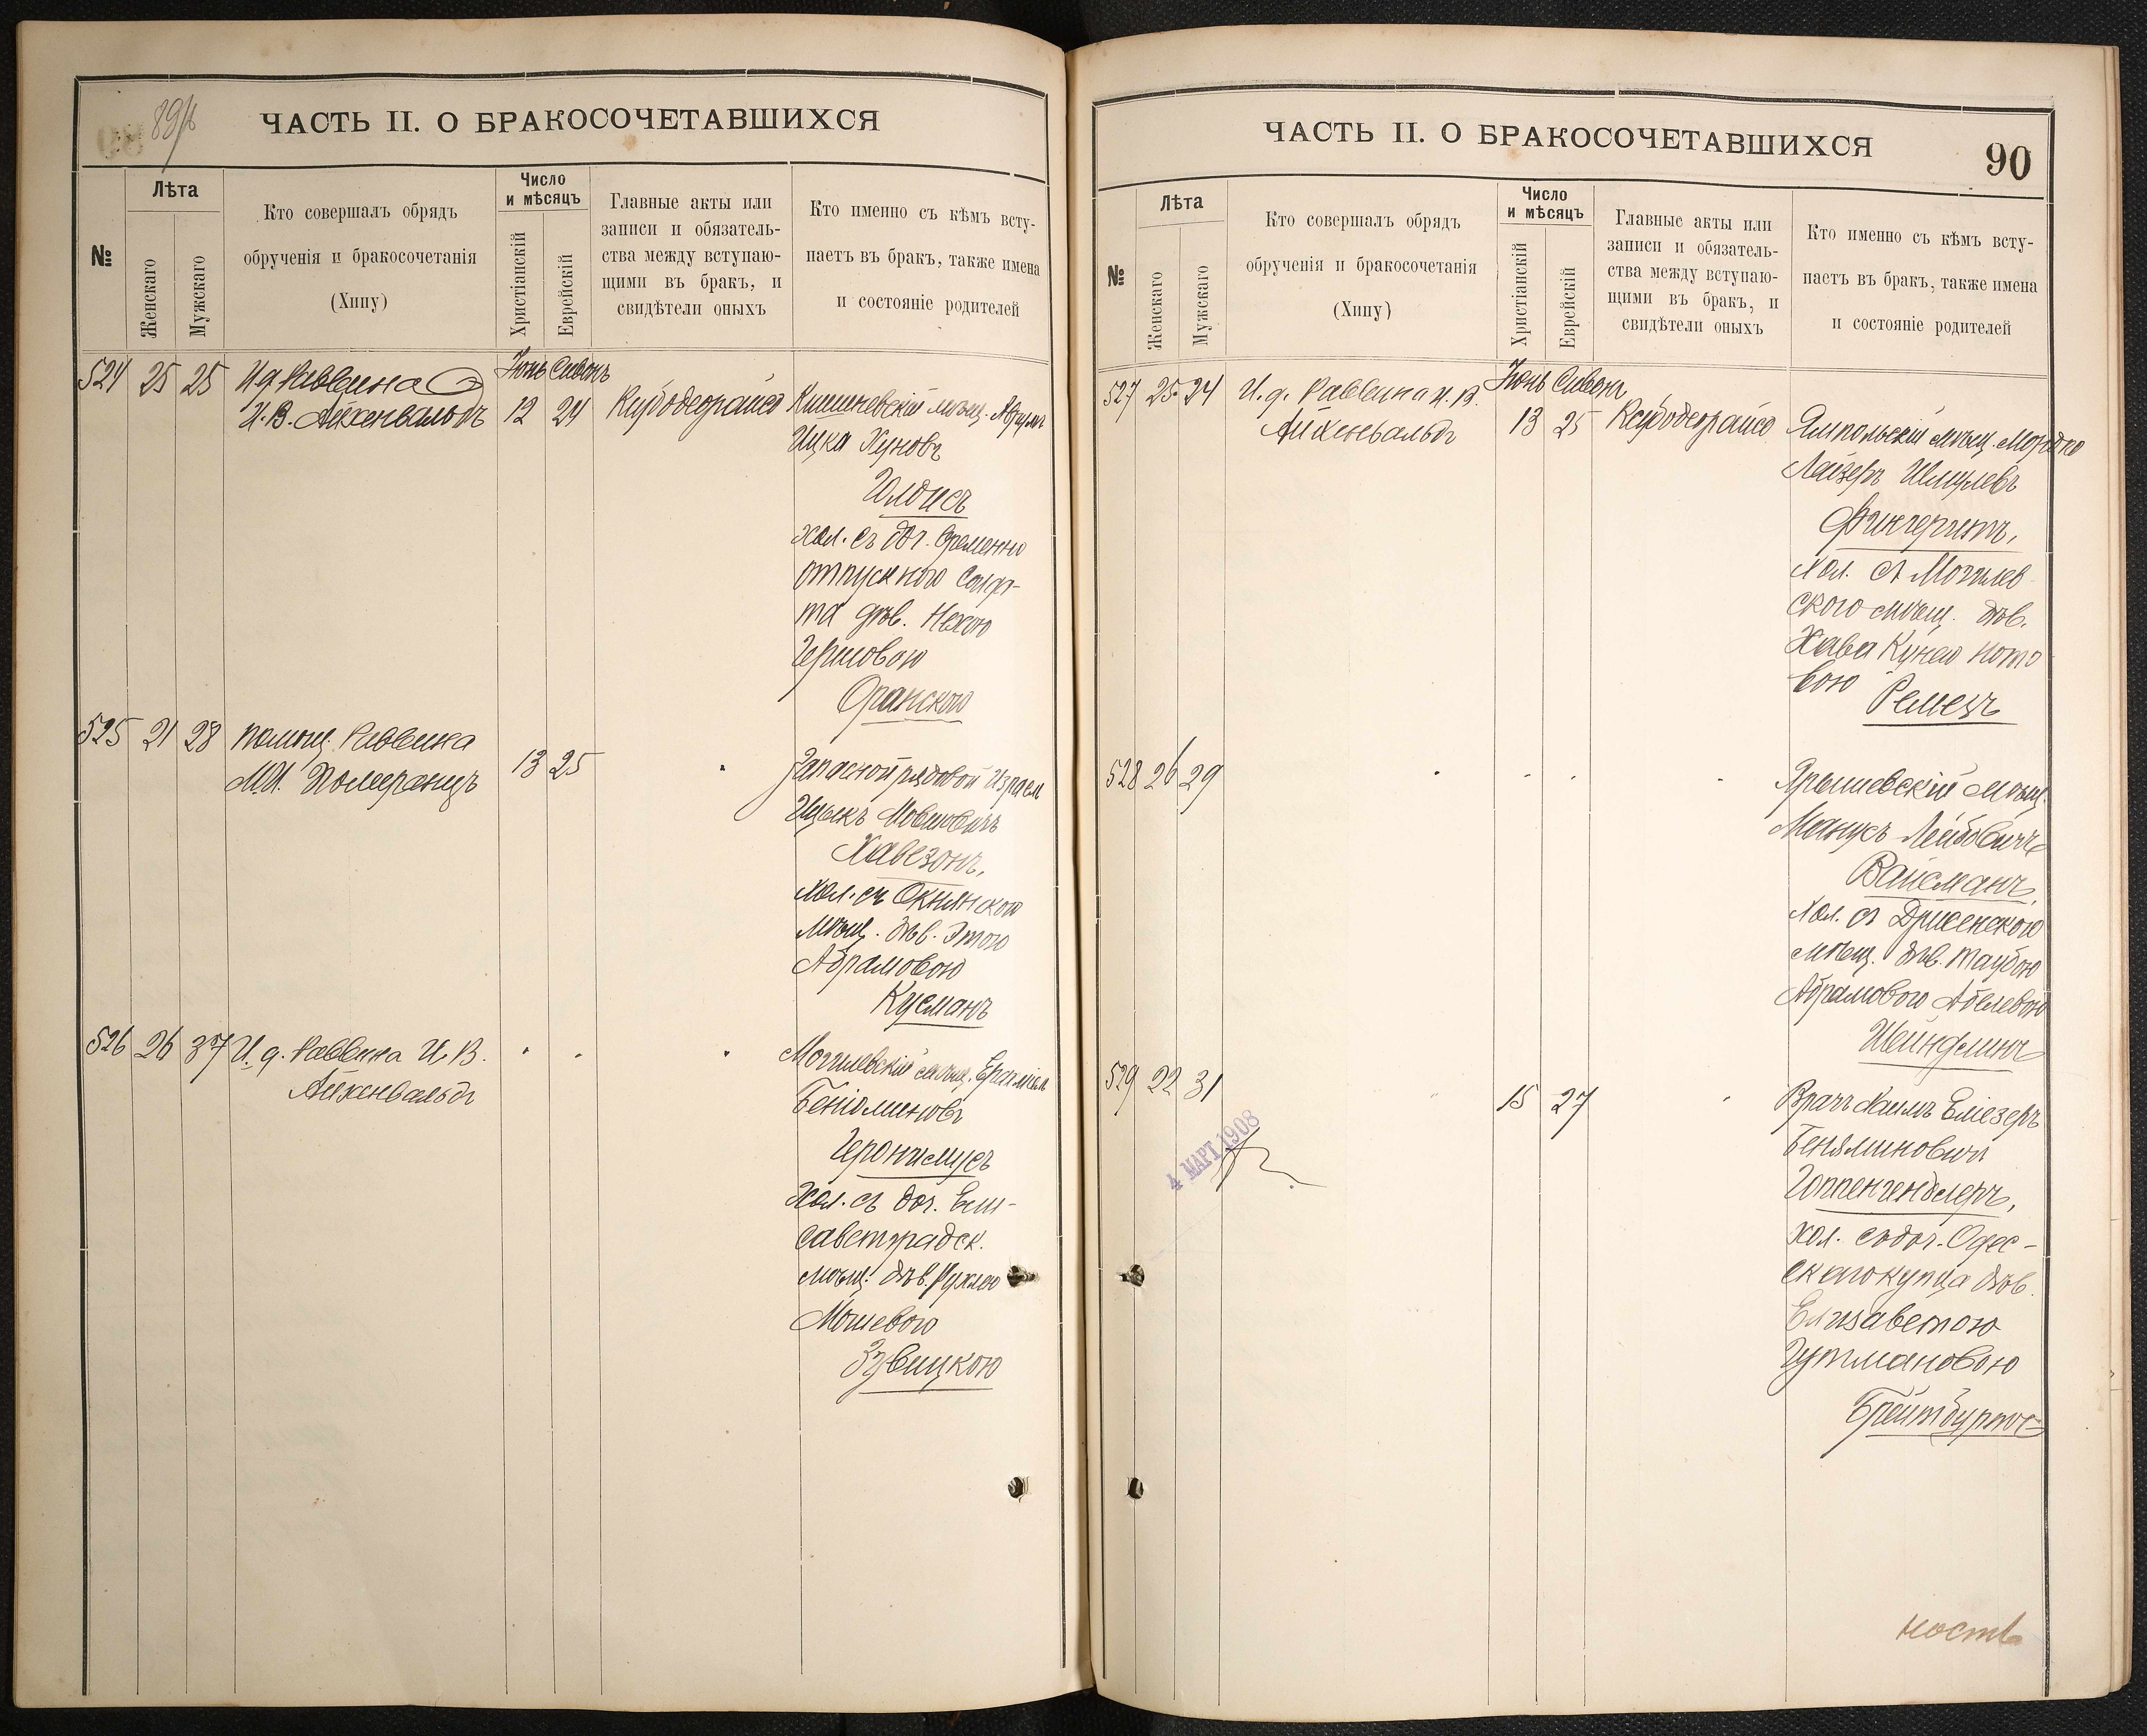 89
ЧАСТЬ II. О БРАКОСОЧЕТАВШИХСЯ
№
Лѣта
Женскаго
Мужскаго
Кто совершалъ обрядъ
обрученія и бракосочетанія
(Хипу)
Число
и мѣсяцъ
Христіанскій
Еврейскій
Главные акты или
записи и обязатель-
ства между вступаю-
щими въ бракъ, и
свидѣтели оныхъ
Кто именно съ кѣмъ всту-
паетъ въ бракъ, также имена
и состояніе родителей
524 25 25 И д Раввина
И. В. Айхенвальдъ
Іюнь Сивонъ
12 24
Кишиневскій мѣщ. Абрумъ
Ицка Хуновъ
Юлдисъ
хол. съ доч. временно
отпускного солда-
та дѣв. Нехою
Гершовою
525 21 28 помощ. Раввина
М.И. Померанцъ
13 25
Запасной рядовой Израель
Ицыкъ Мовшовичъ
Хавезонъ,
хол. съ Окнянскою
мѣщ. дѣв. Этою
Абрамовою
Кусманъ
526 26 37 И. д. Раввина И. В.
Айхенвальдъ
Могилевскій мѣщ.
Беніоминовъ
Геронимусъ
хол. съ доч. Ели-
саветградск.
мѣщ. дѣв. Рухлею
Мошевою
ЧАСТЬ II. О БРАКОСОЧЕТАВШИХСЯ
90
№
Лѣта
Женскаго
Мужскаго
Кто совершалъ обрядъ
обрученія и бракосочетанія
(Хипу)
Число
и мѣсяцъ
Христіанскій
Еврейскій
Главные акты или
записи и обязатель-
ства между вступаю-
щими въ бракъ, и
свидѣтели оныхъ
Кто именно съ кѣмъ всту-
паетъ въ бракъ, также имена
и состояніе родителей
527 25 24 И. д. Раввина И. В.
Айхенвальдъ
Іюнь Сивонъ
13 25
Ямпольскій мѣщ. Мордко
Лейзеръ Шмулевъ
Фингеритъ,
хол. съ Могилев-
ского мѣщ. дѣв.
Хава Кунею Ното-
вою
Ремезъ
528 26 29
Ярышевскій мѣщ.
Манусъ Лейбовичъ
Вайсманъ,
хол. съ Дриссенскою
мѣщ. дѣв. Таубою
Абрамовою Абелевою
Шейнфинъ
529 22 31
4 МАРТ 1908
15 27
Врачъ Хаимъ Еліезеръ
Беняминовичъ
Гоппенгендлеръ,
хол. съ доч. Одес-
скаго купца дѣв.
Елизаветою
Гутмановою